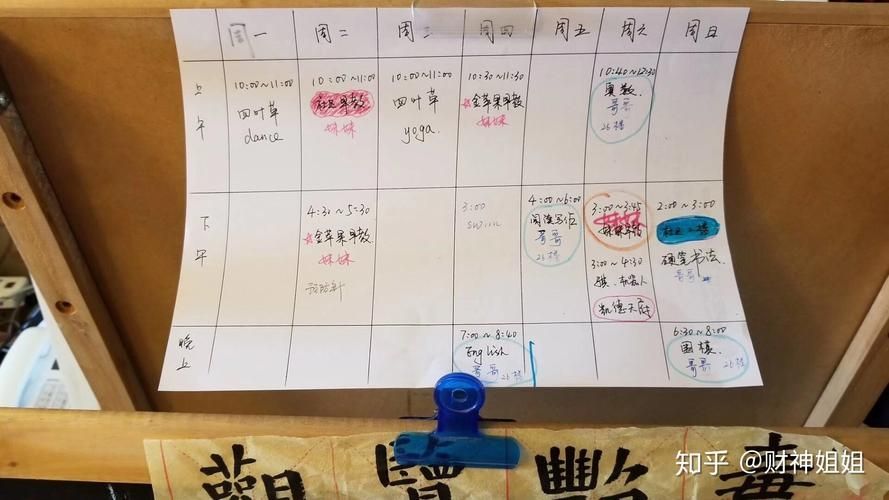 周一 周二 周三 周四 周五 周六 周日
上午
10:00~11:00
四叶草
dance
10:00~11:00
社区早教
妹妹
10:00~11:00
四叶草
yoga.
10:30~11:30
☆金苹果早教
妹妹
10:40~12:30
奥数.
哥哥
26楼
下午
4:30~5:30
☆金苹果早教
妹妹
预防针
3:00
swim
4:00~6:00
阅读写作
哥哥
26楼
3:00~3:45
妹妹早教
3:00~4:30
机器人
凯德天府
2:00~3:00
社区二楼
硬笔书法
哥哥
晚上
7:00~8:40
English
哥哥 26楼
6:30~8:00
围棋.
哥哥 26楼
觀寶艷
知乎 @财神姐姐